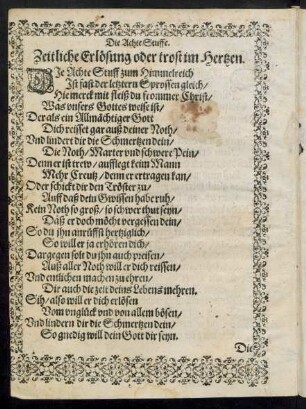 Die Achte Stuffe.
Zeitliche Erlösung oder trost im Hertzen.
DJe Achte Stuff zum Himmelreich
Jst fast der letztern Sprossen gleich/
Hie merck mit fleiß du frommer Christ/
Was vnsers Gottes weise ist/
Der als ein Allmächtiger Gott
Dich reisset gar auß deiner Noth/
Vnd lindert dir die Schmertzen dein/
Die Noth/Marter vnd schwere Pein/
Denn er ist trew/aufflegt keim Mann
Mehr Creutz/denn er ertragen kan/
Oder schickt dir den Tröster zu/
Auff daß dein Gwissen habe ruh/
Kein Noth so groß/so schwer thut seyn/
Daß er doch möcht vergessen dein/
So du jhn anrüffst hertziglich/
So will er ja erhören dich/
Dargegen solt du jhn auch preisen/
Auß aller Noth will er dich reissen/
Vnd entlichen machen zu ehren/
Die auch die zeit deins Lebens mehren.
Sih/also will er dich erlösen
Vom vnglück vnd von allem bösen/
Vnd lindern dir die Schmertzen dein/
So gnedig will dein Gott dir seyn.
Die